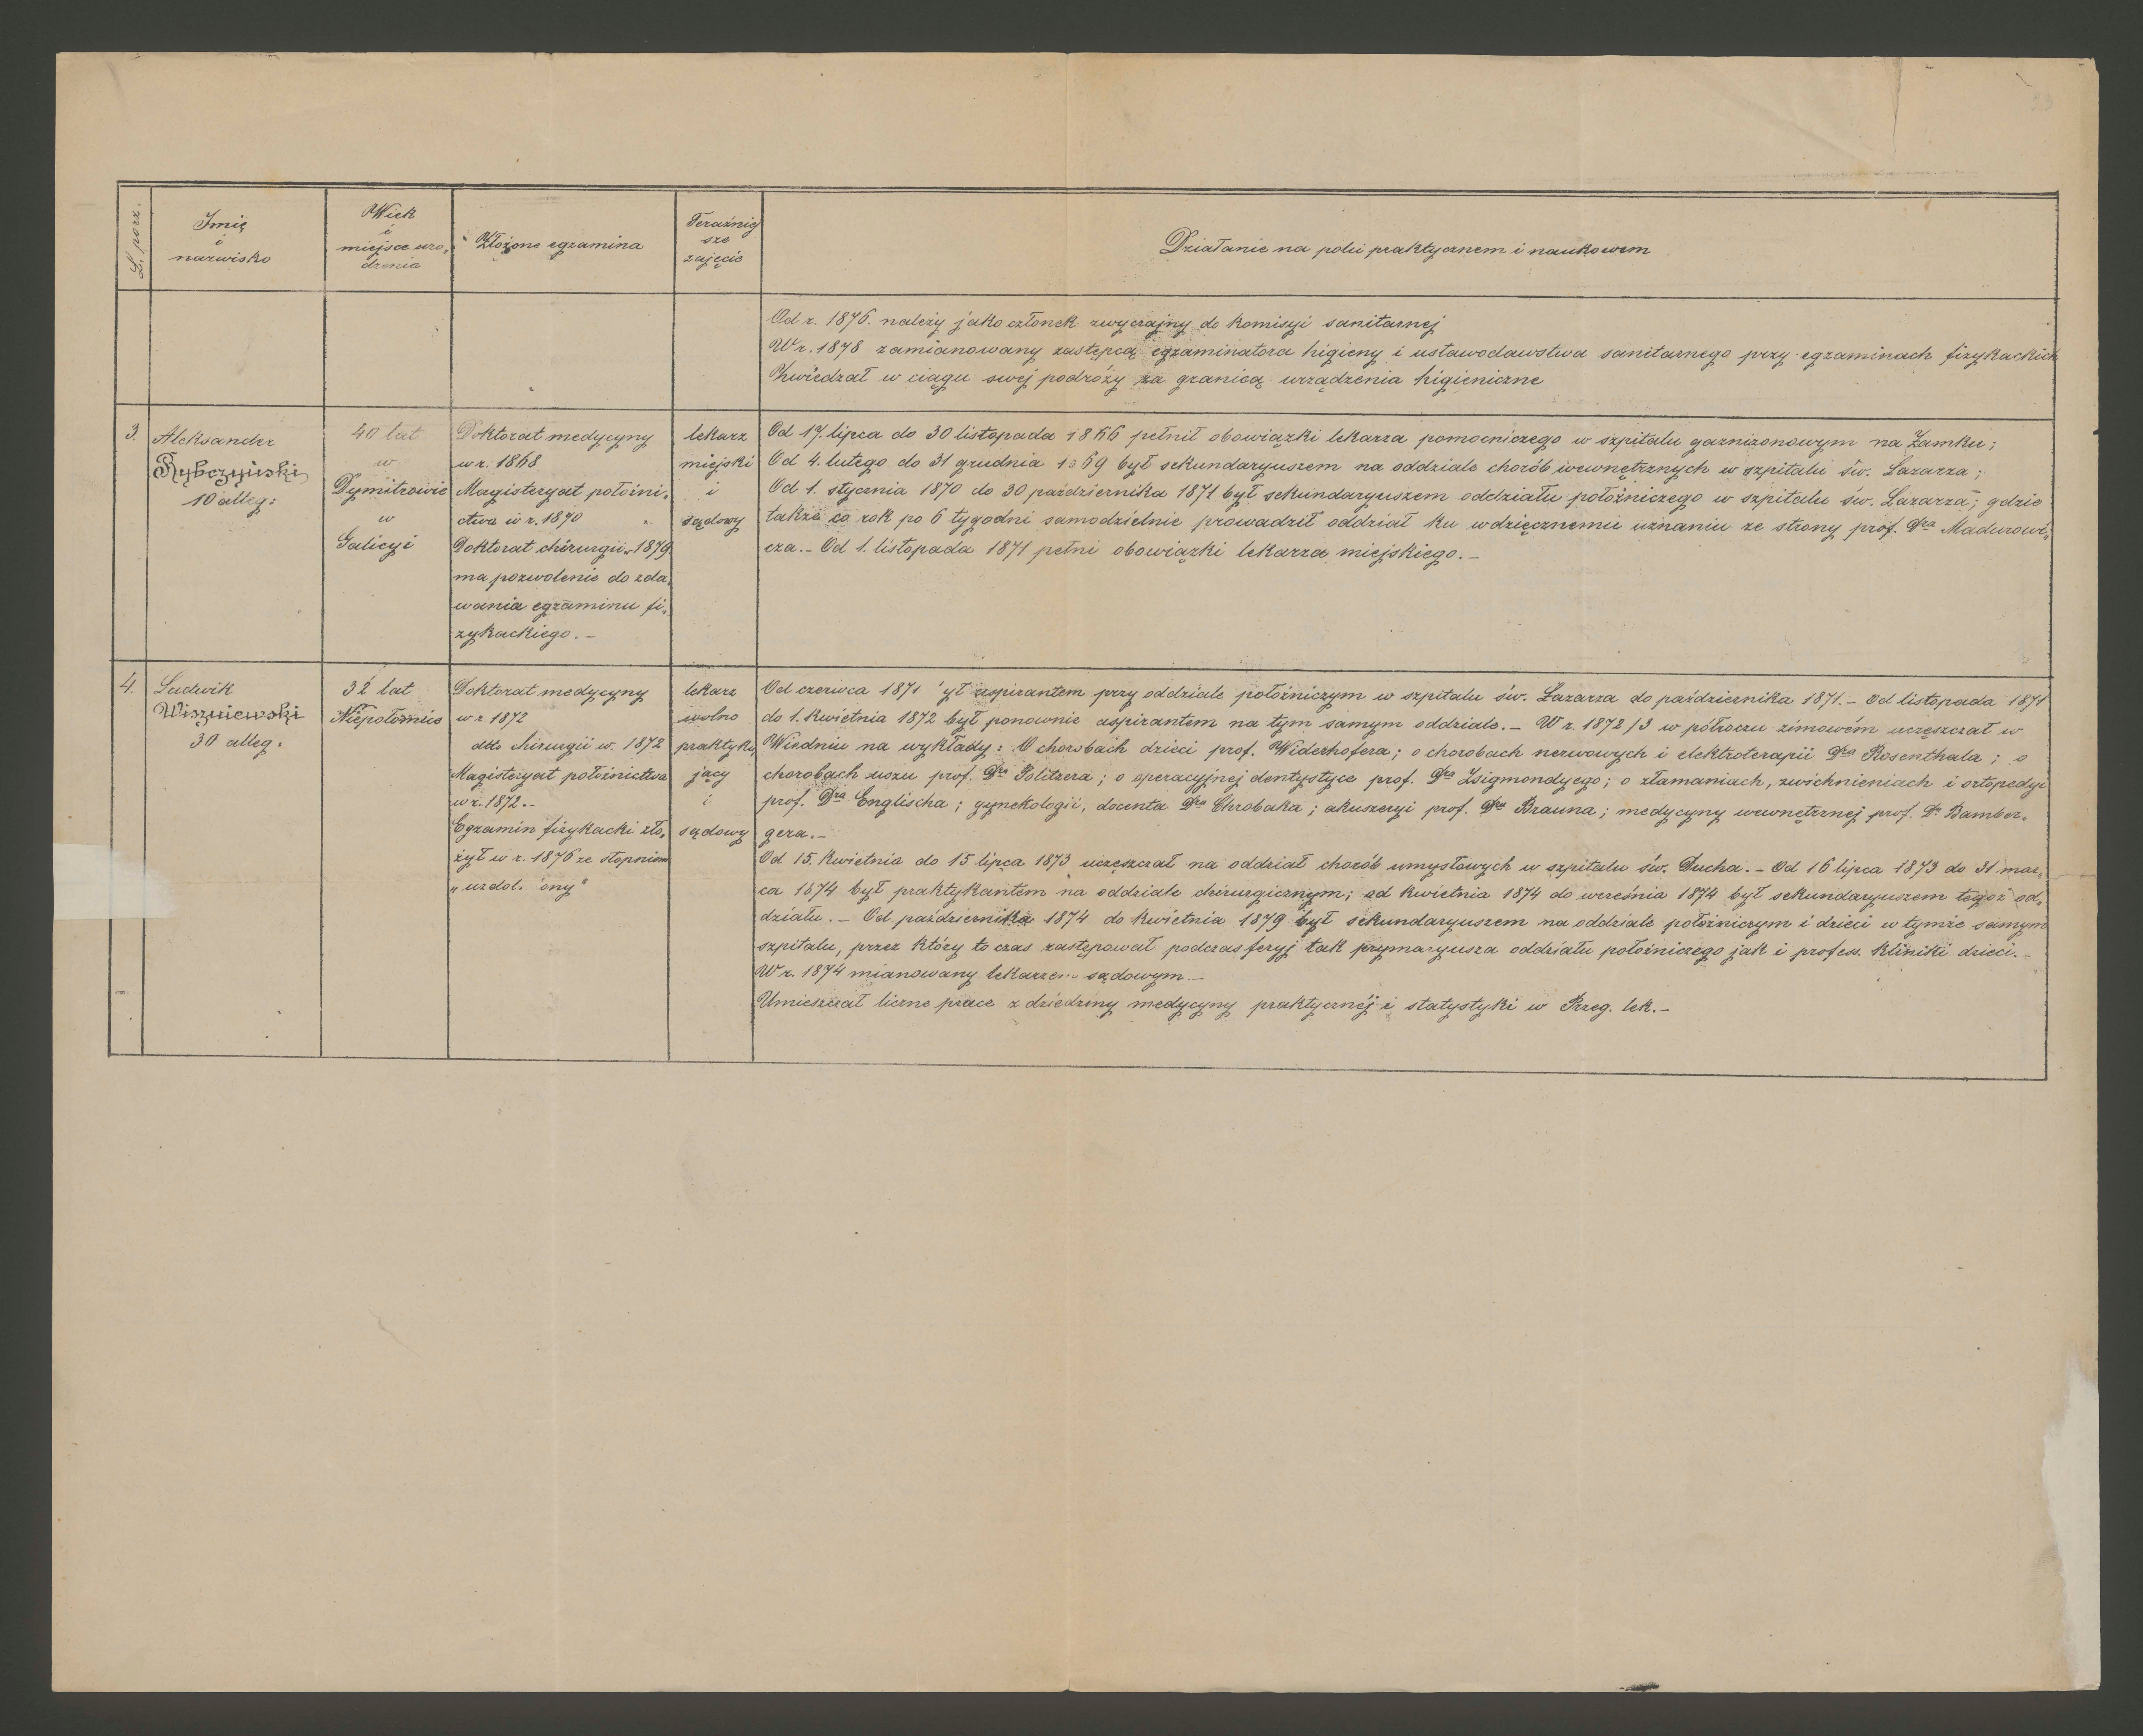 L. porz.
Imię
i
nazwisko
Wiek
i
miejsce uro„
dzenia
Złożone egzamina
Teraźniej
sze
zajęcie
Działanie na polu praktycznem i naukowem
Od r. 1876. należy jako członek zwyczajny do komisyi sanitarnej
W r. 1878 zamianowany zastępcą egzaminatora higieny i ustawodawstwa sanitarnego przy egzaminach fizykackich
Zwiedzał w ciągu swej podróży za granicą urządzenia higieniczne
3.
Aleksander
Rybczyński
10 alleg:
40 lat
w
Dymitrowie
w
Galicyi
Doktorat medycyny
w r. 1868
Magisteryat położni„
ctwa w r. 1870
Doktorat chirurgii w 1879
ma pozwolenie do zda„
wania egzaminu fi„
zykackiego. —
lekarz
miejski
i
sądowy
Od 17. lipca do 30 listopada 1866 pełnił obowiązki lekarza pomocniczego w szpitalu garnizonowym na Zamku;
Od 4. lutego do 31 grudnia 1869 był sekundaryuszem na oddziale chorób wewnętrznych w szpitalu św. Łazarza;
Od 1. stycznia 1870 do 30 października 1871 był sekundaryuszem oddziału położniczego w szpitalu św. Łazarza; gdzie
także co rok po 6 tygodni samodzielnie prowadził oddział ku wdzięcznemu uznaniu ze strony prof. Dra Madurowi„
cza. — Od 1. listopada 1871 pełni obowiązki lekarza miejskiego. —
4.
Ludwik
Wiszniewski
30 alleg:
32 lat
Niepołomice
Doktorat medycyny
w r. 1872
dtto chirurgii w. 1872
Magisteryat położnictwa
w r. 1872. —
Egzamin fizykacki zło„
żył w r. 1876 ze stopniem
„uzdol. ony"
lekarz
wolno
praktyku„
jący
i
sądowy
Od czerwca 1871 ył aspirantem przy oddziale położniczym w szpitalu św. Łazarza do października 1871. — Od listopada 1871
do 1. kwietnia 1872 był ponownie aspirantem na tym samym oddziale. — W r. 1872/3 w półroczu zimowém uczęszczał w
Wiedniu na wykłady: O chorobach dzieci prof. Widerhofera; o chorobach nerwowych i elektroterapii Dra Rosenthala; o
chorobach uszu prof. Dra Politzera; o operacyjnej dentystyce prof. Dra Zsigmondyego; o złamaniach, zwichnieniach i ortopedyi
prof. Dra Englischa; gynekologii, docenta Dra Chrobaka; akuszeryi prof. Dra Brauna; medycyny wewnętrznej prof. Dr Bamber„
gera. —
Od 15. kwietnia do 15 lipca 1873 uczęszczał na oddział chorób umysłowych w szpitalu św. Ducha. — Od 16 lipca 1873 do 31 mar„
ca 1874 był praktykantem na oddziale chirurgicznym; od kwietnia 1874 do września 1874 był sekundaryuszem tegoż od„
działu. — Od października 1874 do kwietnia 1879 był sekundaryuszem na oddziale położniczym i dzieci w tymże samym
szpitalu, przez który to czas zastępował podczas feryj tak prymaryusza oddziału położniczego jak i profess. kliniki dzieci. —
W r. 1874 mianowany lekarzem sądowym. —
Umieszczał liczne prace z dziedziny medycyny praktycznéj i statystyki w Przeg. lek. —